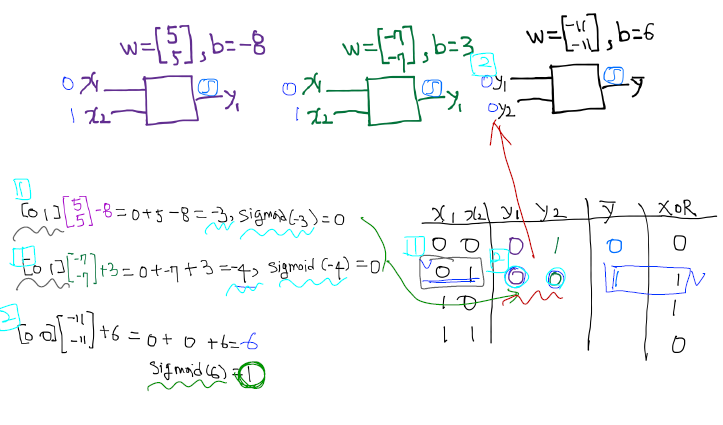 w=[5 5], b=-8
w=[-7 -7], b=3
w=[-11 -11], b=6
0 x1
1 x2
5 y1
0 x1
1 x2
5 y1
2
0 y1
0 y2
5 ȳ
1
[0 1][5 5]-8=0+5-8=-3, sigmoid(-3)=0
1
[0 1][-7 -7]+3=0+-7+3=-4, sigmoid(-4)=0
2
[0 0][-11 -11]+6=0+0+6=-6
sigmoid(6)=1
x1 x2 y1 y2 ȳ XOR
1 0 0 0 1 0 0
0 1 2 0 0 1 1
1 0 1
1 1 0